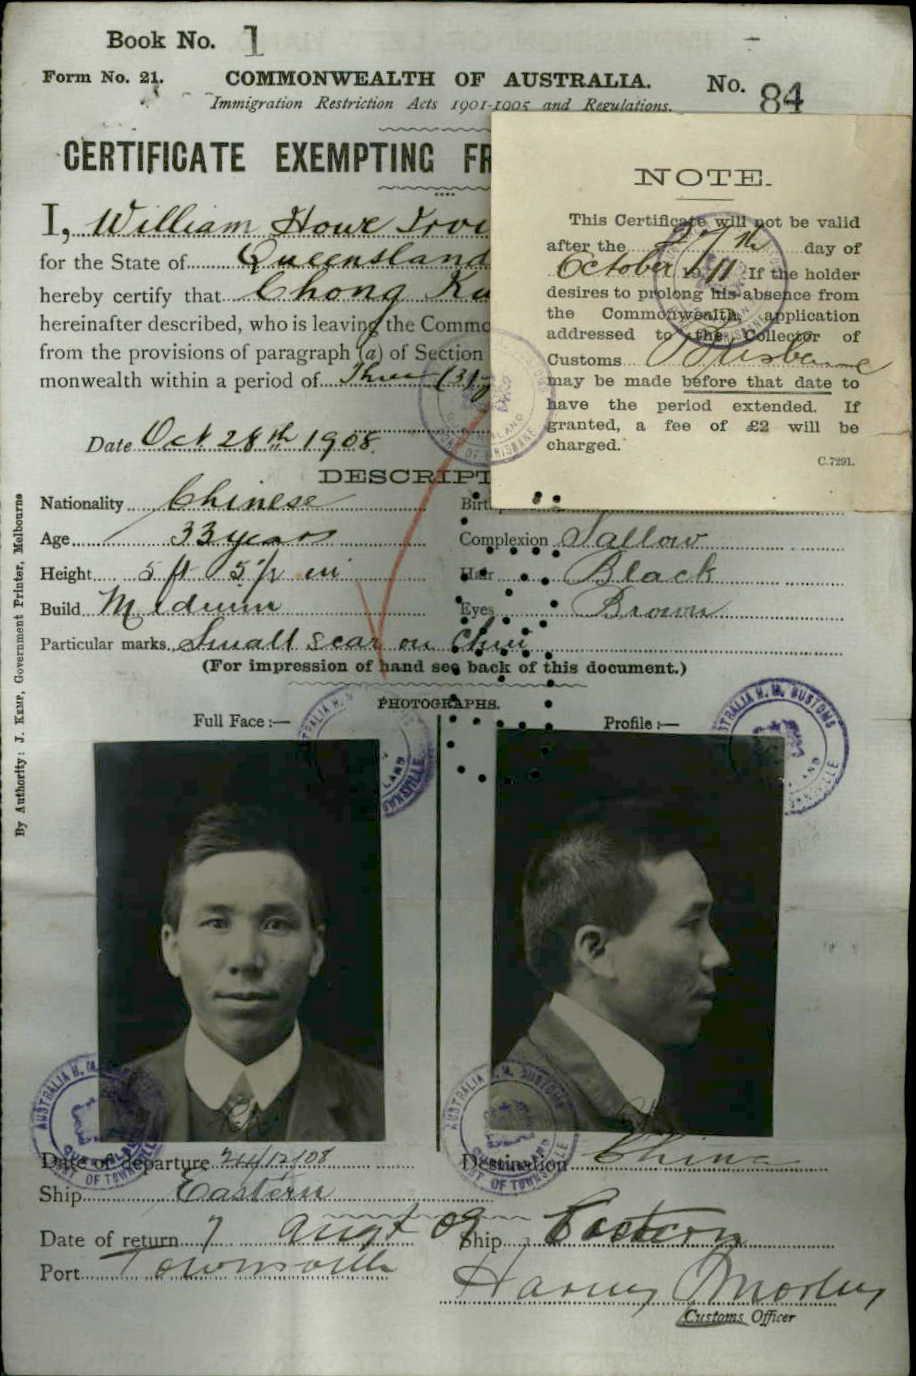 Book No. 1
Form No. 21. COMMONWEALTH OF AUSTRALIA. No. 84
Immigration Restriction Acts 1901-1905 and Regulations.
CERTIFICATE EXEMPTING FR
I, William Howe Irvi
for the State of Queensland
hereby certify that Chong Ku
hereinafter described, who is leaving the Commo
from the provisions of paragraph (a) of Section
monwealth within a period of Three (3) y
Date Oct 28th 1908.
NOTE.
This Certificate will not be valid
after the 27th day of
October 1911 If the holder
desires to prolong his absence from
the Commonwealth, application
addressed to the Collector of
Customs Brisbane
may be made before that date to
have the period extended. If
granted, a fee of £2 will be
charged.
C.7291.
DESCRIPT
Nationality Chinese Birt
Age 33 years Complexion Sallow
Height 5 ft 5 1/2 in Hair Black
Build Medium Eyes Brown
Particular marks Small scar on Chin
(For impression of hand see back of this document.)
PHOTOGRAPHS.
Full Face :— Profile :—
By Authority: J. KEMP, Government Printer, Melbourne
AUSTRALIA H. M. CUSTOMS
Date of departure 24/12/08 Destination China
Ship Eastern
Date of return 7 Augt 09 Ship Eastern
Port Townsville
Harvey Morley
Customs Officer